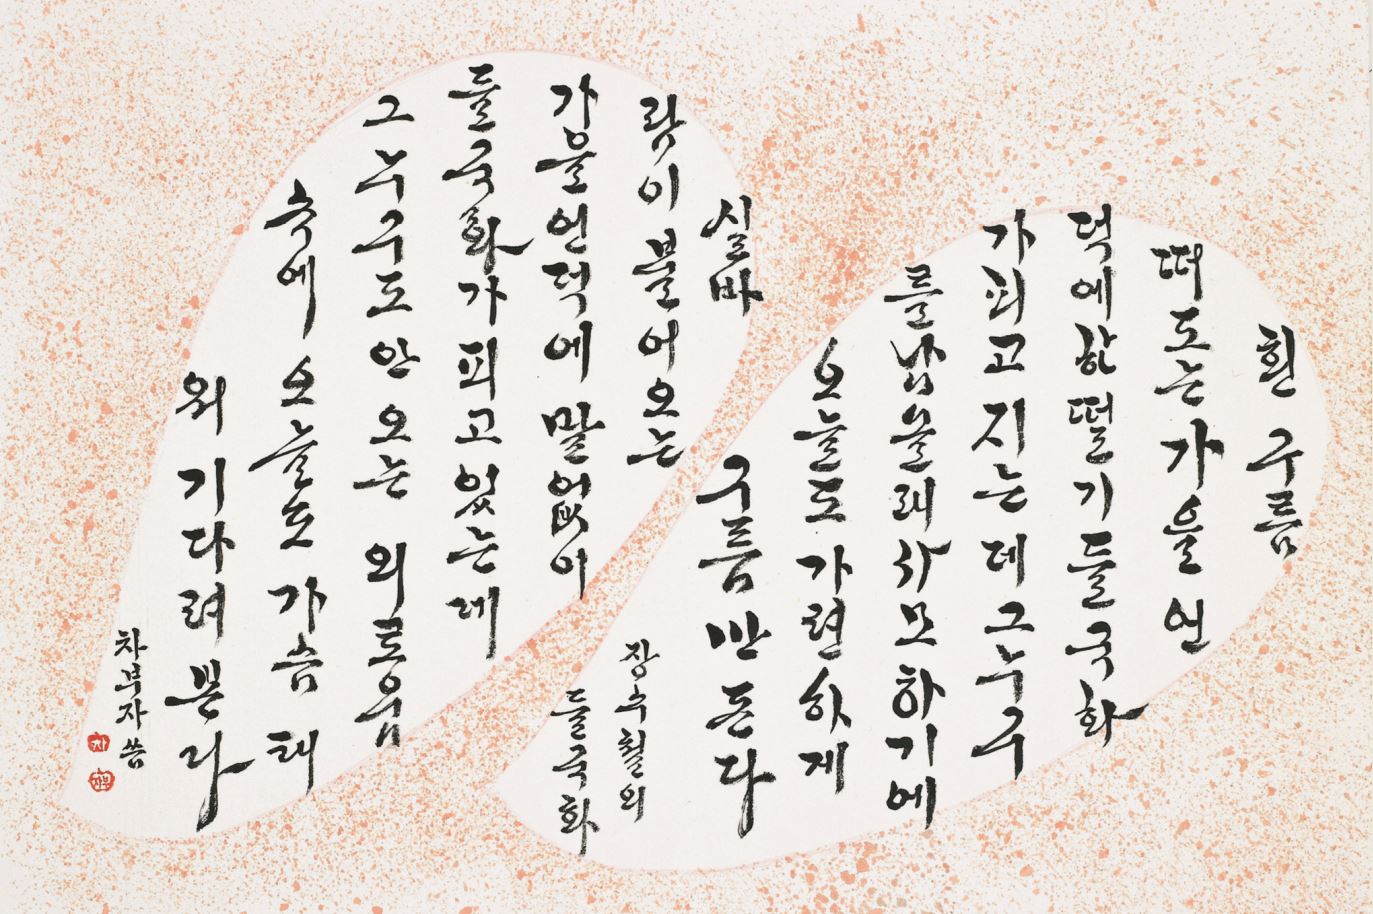 흰 구름
떠도는 가을 언
덕에 한 떨기 들국화
가 피고 지는데 그 누구
를 남몰래 사모하기에
오늘도 가련하게
구름만 돈다
장수철의
들국화
실바
람이 불어오는
가을 언덕에 말없이
들국화가 피고 있는데
그 누구도 안 오는 외로움
속에 오늘도 가슴 태
워 기다려 본다
차부자 씀